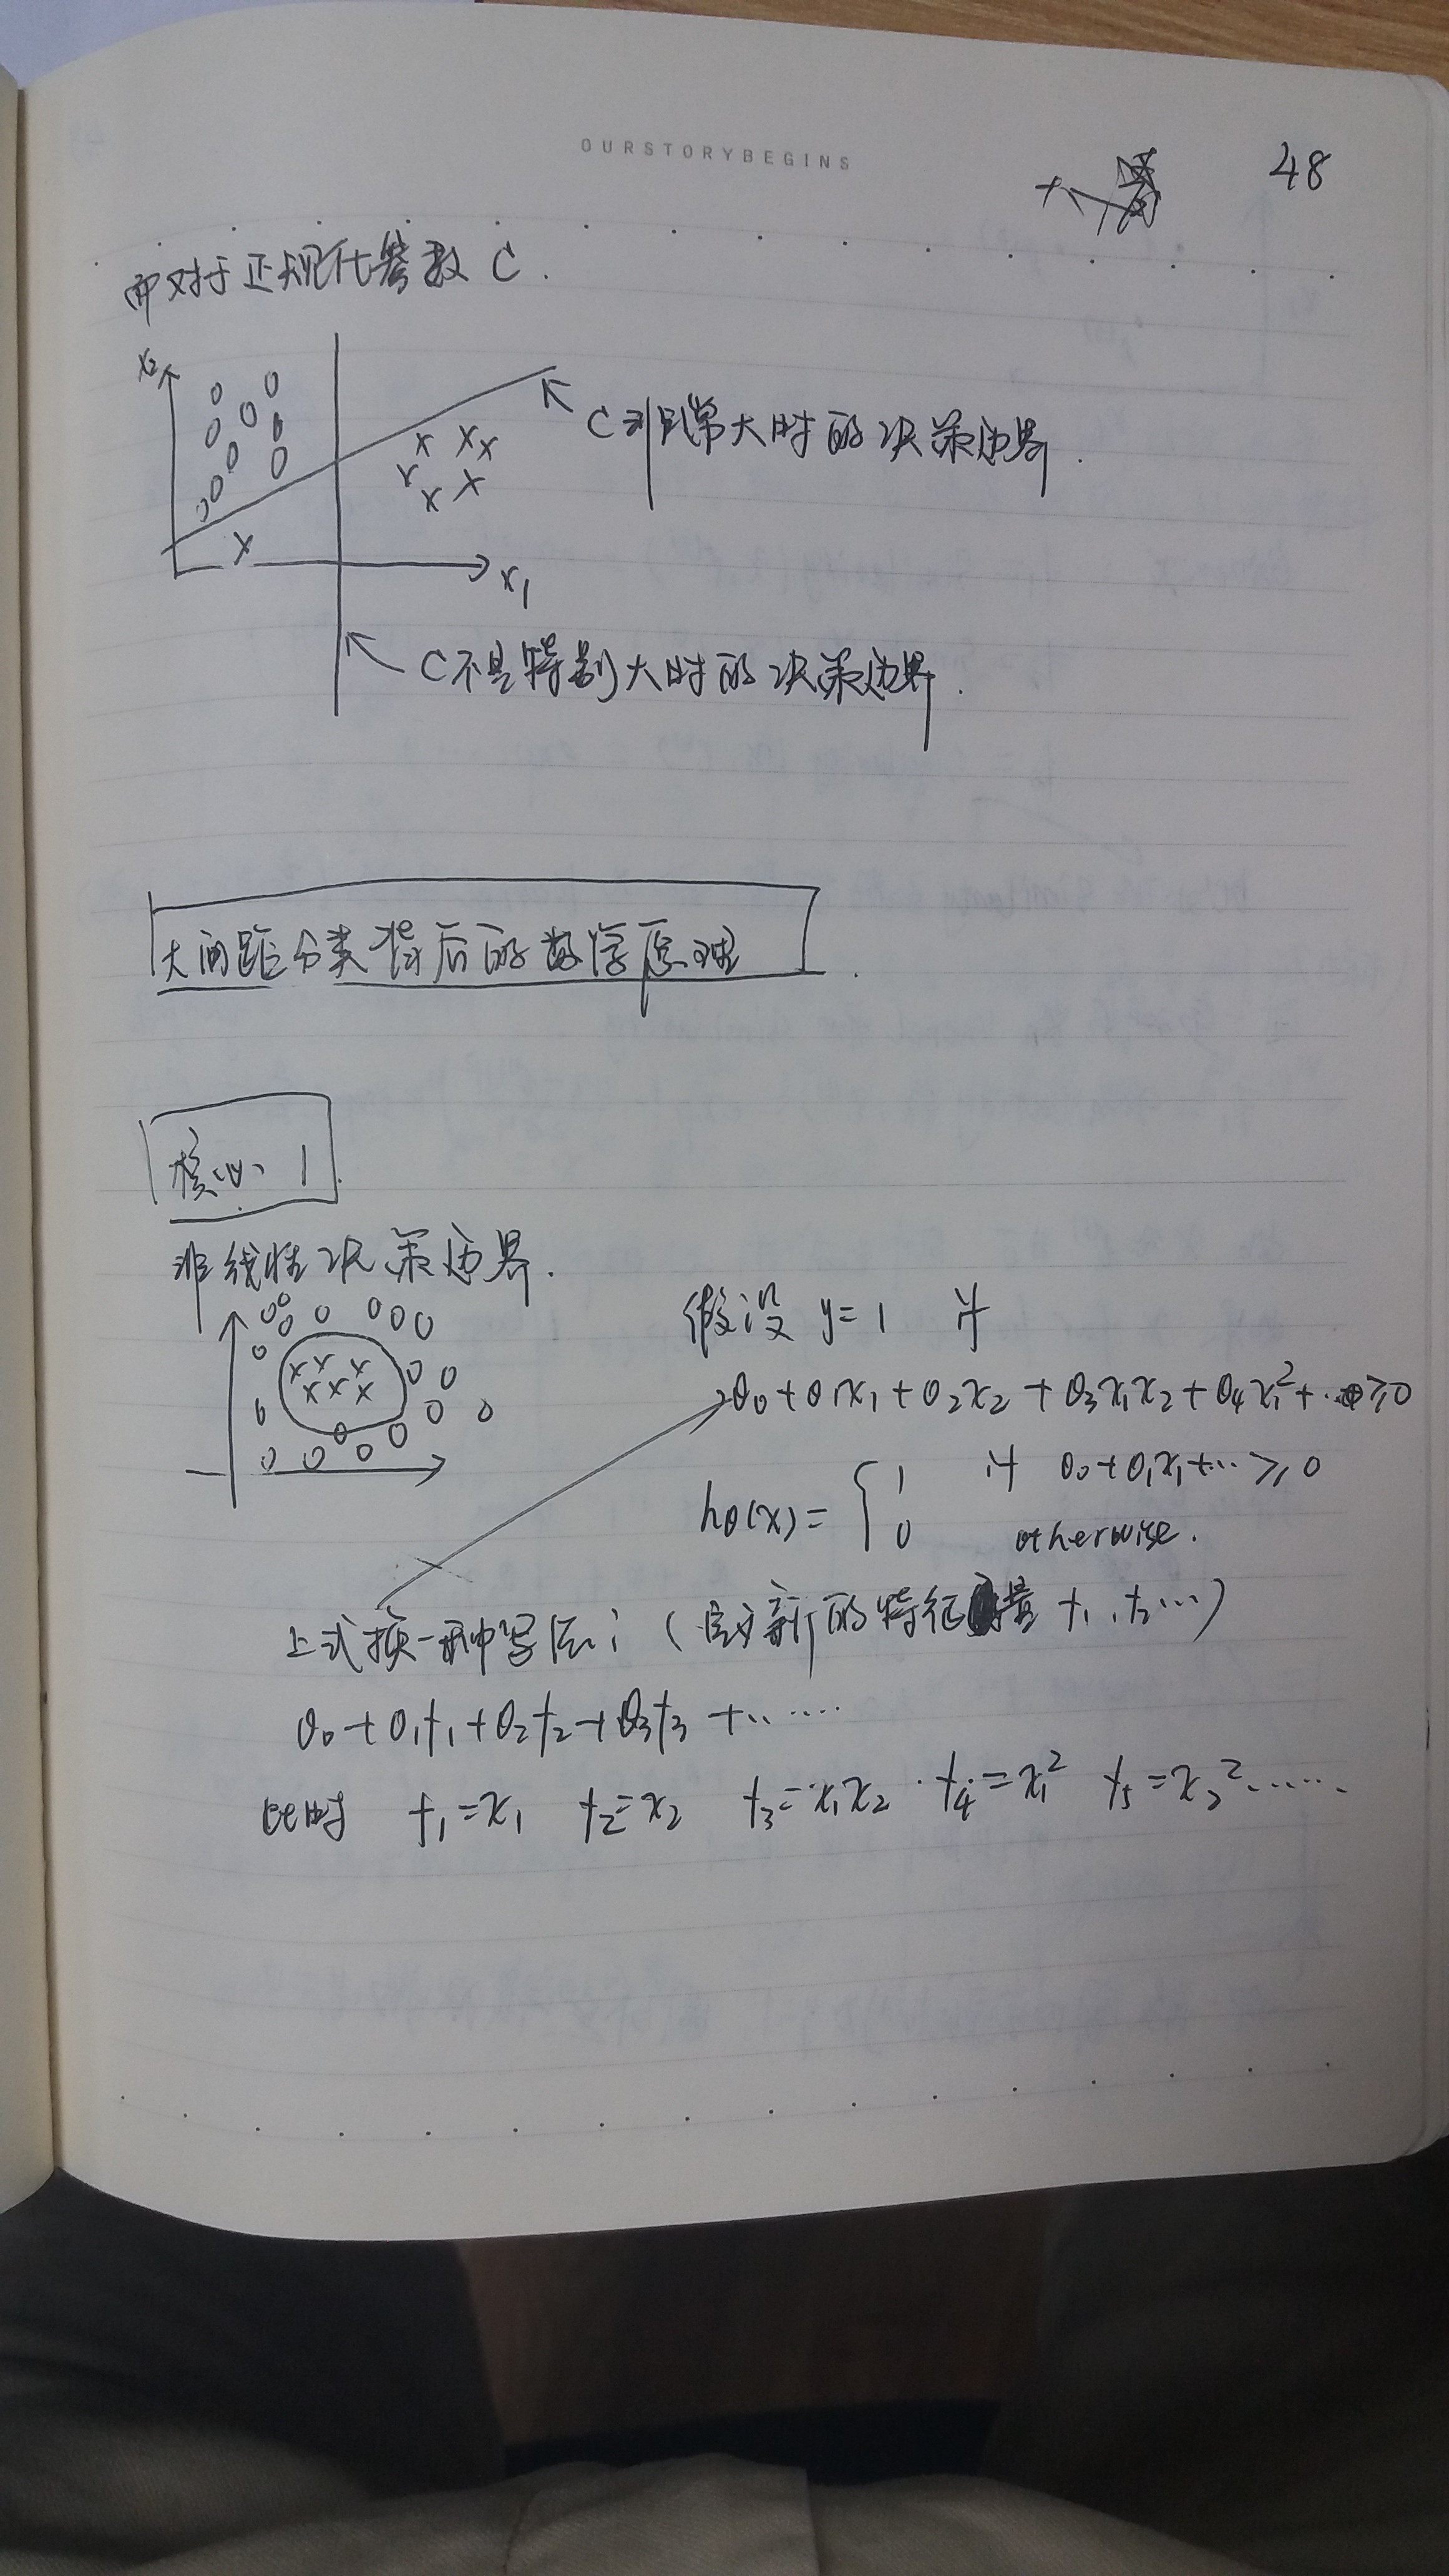 OURSTORYBEGINS
48
而对于正规化参数 C.
x₂
C非常大时的决策边界.
x₁
C不是特别大时的决策边界.
大间距分类背后的数学原理.
核心 1
非线性决策边界.
假设 y=1 if
θ₀+θ₁x₁+θ₂x₂+θ₃x₁x₂+θ₄x₁²+…≥0
hθ(x)= { 1 if θ₀+θ₁x₁+… ≥0
0 otherwise.
上式换一种写法: (新的特征量 f₁,f₂…)
θ₀+θ₁f₁+θ₂f₂+θ₃f₃+……
此时 f₁=x₁ f₂=x₂ f₃=x₁x₂ f₄=x₁² f₅=x₂²……